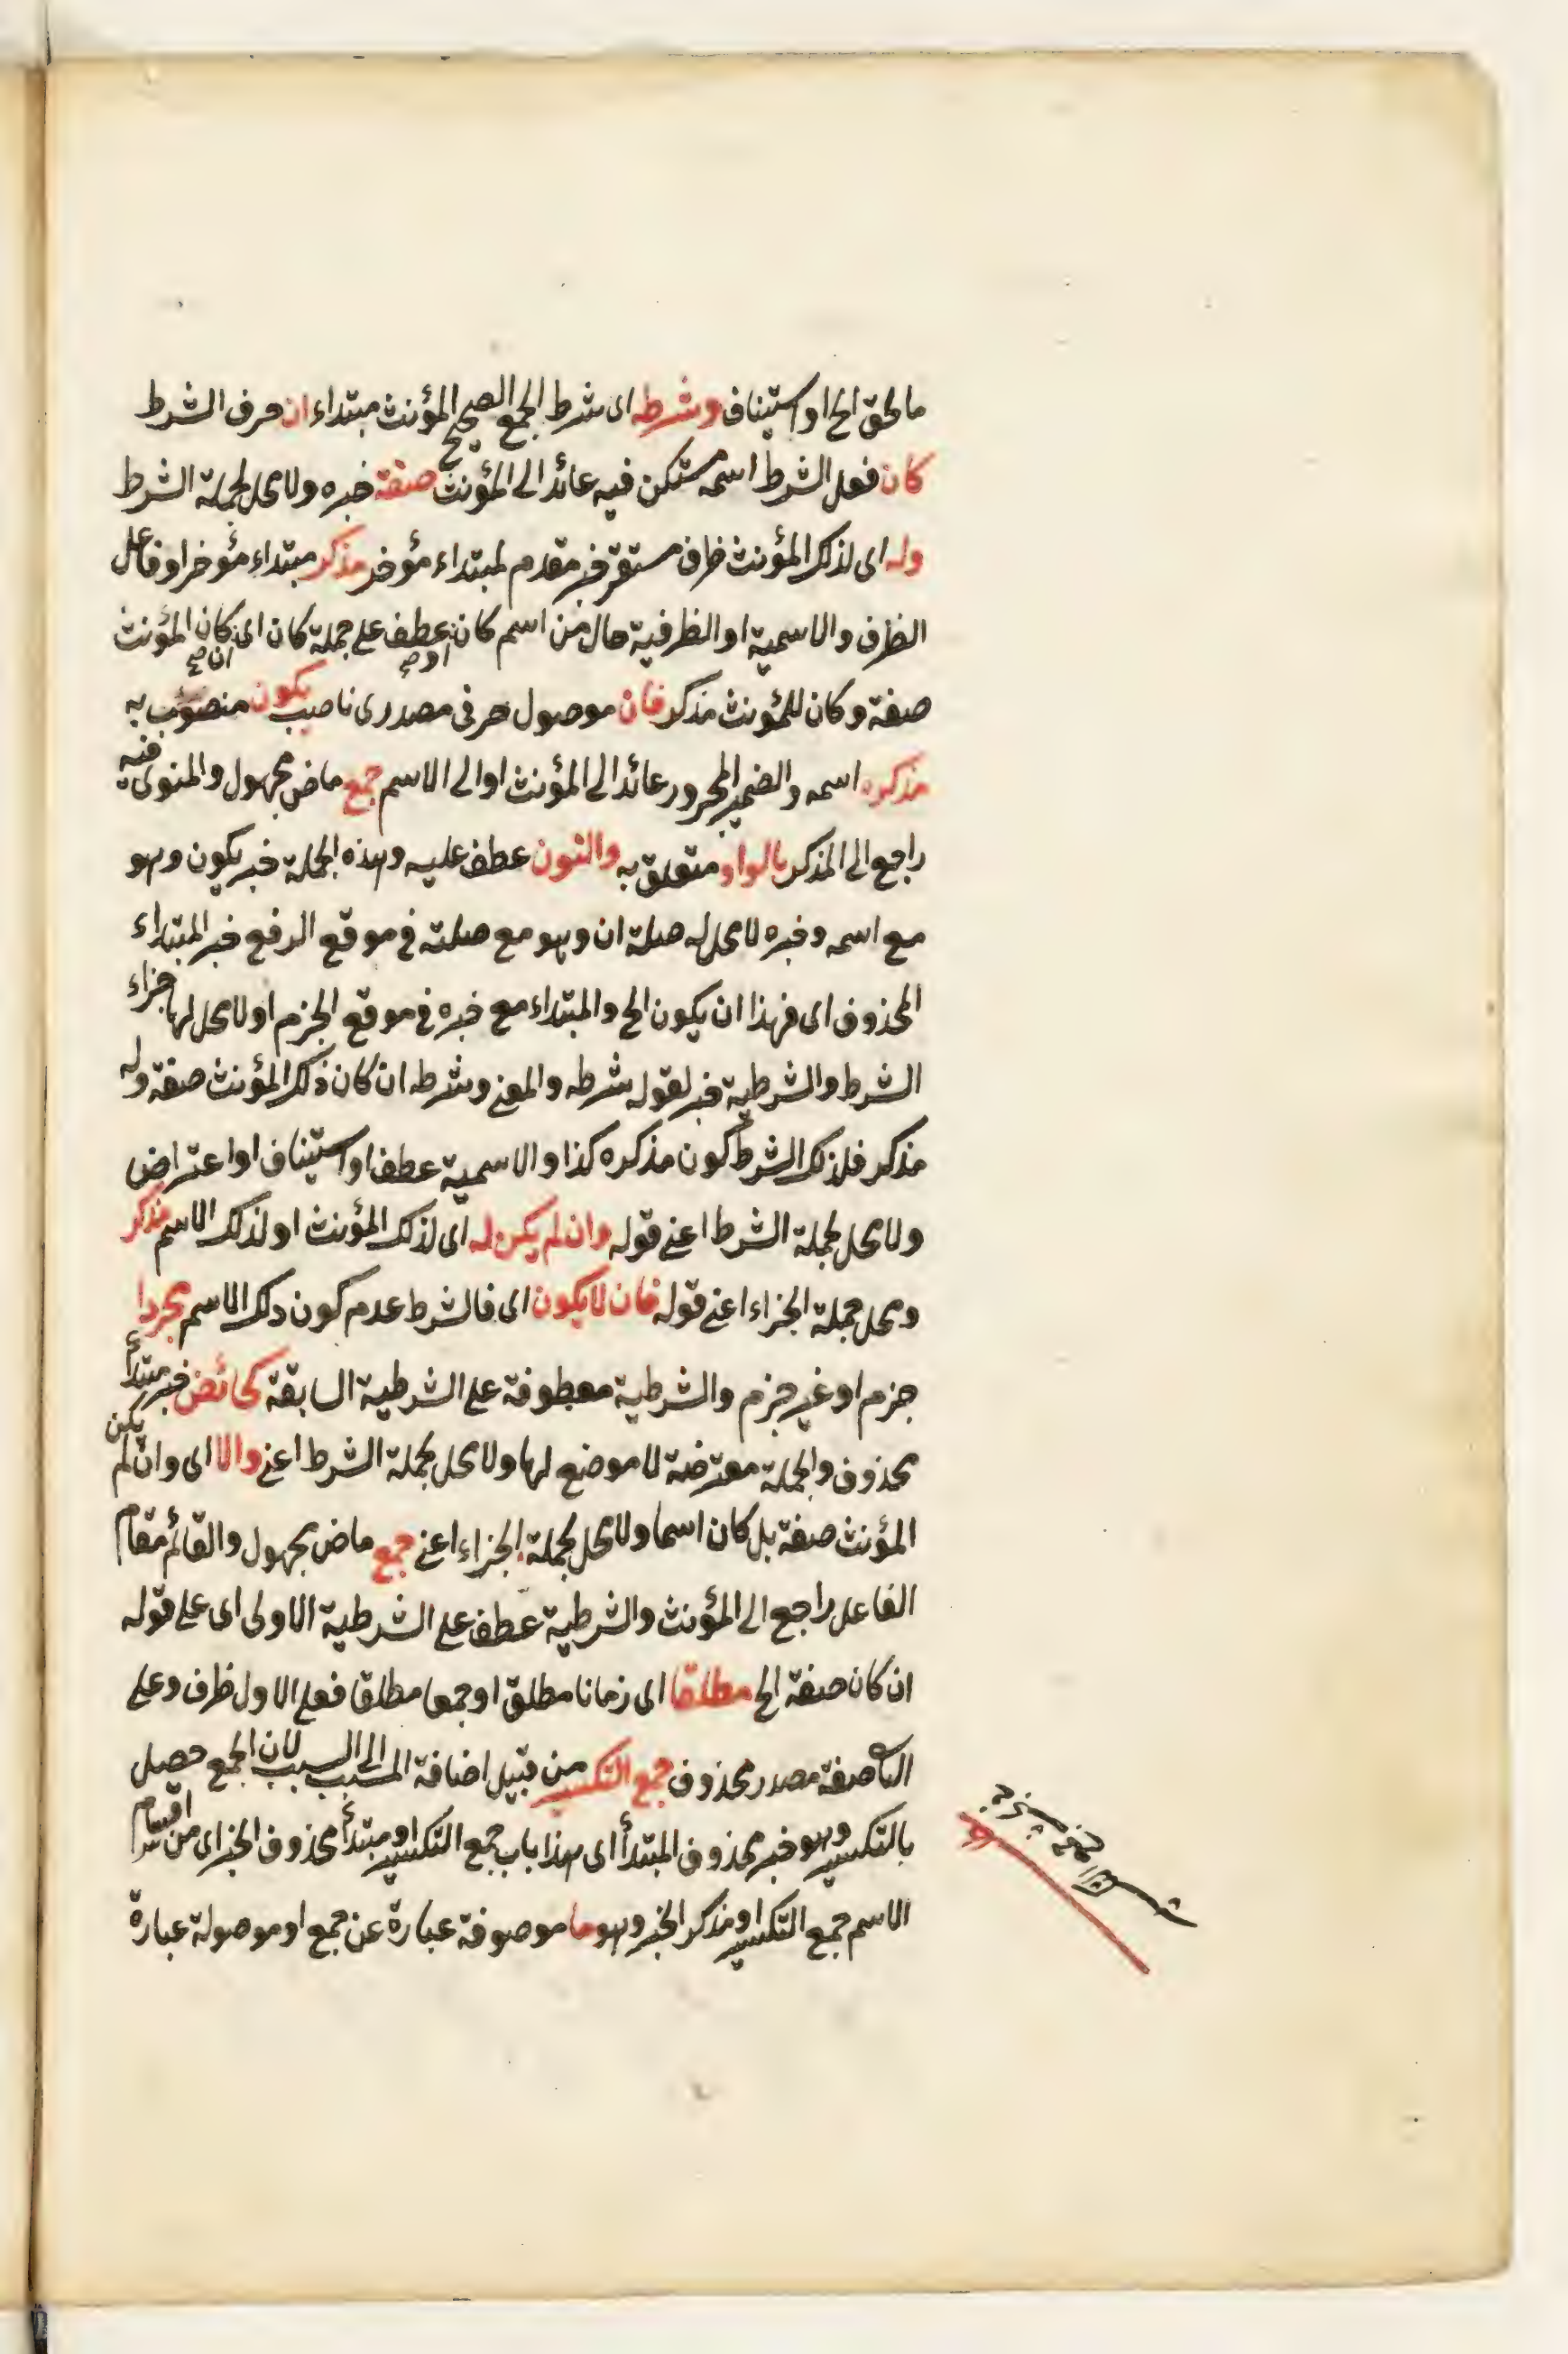 ما لحق الخ او استيناف وشرطه اى شرط الجمع الصحيح المؤنث مبتداء ان حرف الشرط
كان فعل الشرط اسمه مستكن فيه عائد الى المؤنث صفة خبره ولا محل لجملة الشرط
وله اى لذلك المؤنث ظرف مستقر خبر مقدم لمبتداء مؤخر مذكر مبتداء مؤخر او فاعل
الظرف والاسمية او الظرفية حال من اسم كان او عطف على جملة كان اى ان كان المؤنث
صفة وكان للمؤنث مذكر فان موصول حرفى مصدرى ناصب يكون منصوب به
مذكره اسمه والضمير المجرور عائد الى المؤنث او الى الاسم جمع ماض مجهول والمنوى فيه
راجع الى المذكر بالواو متعلق به والنون عطف عليه وهذه الجملة خبر يكون وهو
مع اسمه وخبره لا محل له صلة ان وهو مع صلته فى موقع الرفع خبر المبتداء
المحذوف اى فهذا ان يكون الخ والمبتداء مع خبره فى موقع الجزم او لا محل لها جزاء
الشرط والشرطية خبر لقوله شرطه والمعنى وشرطه ان كان ذلك المؤنث صفة وله
مذكر فلذلك الشرط كون مذكره كذا والاسمية عطف او استيناف او اعتراض
ولا محل لجملة الشرط اعنى قوله وان لم يكن له اى لذلك المؤنث او لذلك الاسم مذكر
ومحل جملة الجزاء اعنى قوله فان لا يكون اى فالشرط عدم كون ذلك الاسم مجردا
جزم او غير جزم والشرطية معطوفة على الشرطية السابقة كحائض خبر مبتدأ
محذوف والجملة معترضة لا موضع لها ولا محل لجملة الشرط اعنى والا اى وان لم يكن
المؤنث صفة بل كان اسما ولا محل لجملة الجزاء اعنى جمع ماض مجهول والقائم مقام
الفاعل راجع الى المؤنث والشرطية عطف على الشرطية الاولى اى على قوله
ان كان صفة الخ مطلقا اى زمانا مطلق او جمعا مطلقا فعلى الاول ظرف وعلى
صفة مصدر محذوف جمع التكسير من قبيل اضافة المسبب الى السبب لان الجمع حصيل
بالتكسير وهو خبر محذوف المبتدأ اى هذا باب جمع التكسير او مبتدأ محذوف الخبر اى من اقسام
الاسم جمع التكسير او مذكر الخبر وهو ما موصوفة عبارة عن جمع او موصولة عبارة